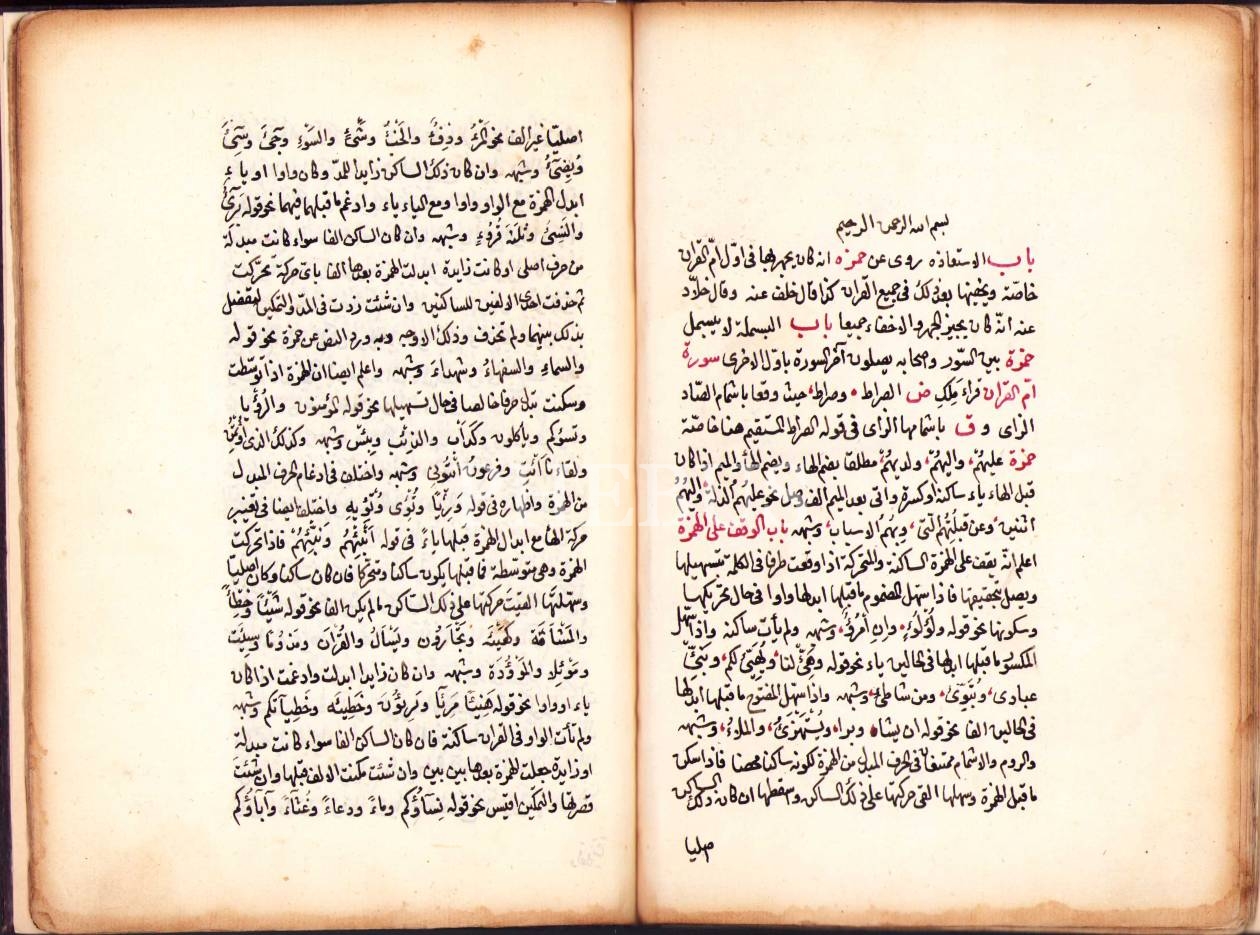 بسم الله الرحمن الرحيم
باب الاستعاذه روى عن حمزه انه كان يجهر بها فى اوّل امّ القرآن
خاصّة ويخفيها بعد ذلك فى جميع القرآن كذا قال خلف عنه وقال خلّاد
عنه انّه كان يجيز الجهر والاخفاء جميعا باب البسملة لا يبسمل
حمزة بين السّور واصحابه يصلون آخر السورة باوّل الاخرى سورة
امّ القرآن قراء مَلِكِ ض الصراط، وصراط، حيث وقعا باشمام الصّاد
الزاى و ق باشمامها الزاى فى قوله الصراط المستقيم هنا خاصّة
حمزة عليهُم، واليهُم، ولديهُم، مطلقا بضم الهاء ويضم الهاء والميم اذا كان
قبل الهاء ياء ساكنة او كسرة واتى بعد الميم الف وصل نحو عليهُمُ الذلة، واليهُمُ
اثنين، وعن قبلتهُمُ التى، وبهُمُ الاسباب، وشبهه باب الوقف على الهمزة
اعلم انّه يقف على الهمزة الساكنة والمتحركة اذا وقعت طرفا فى الكلمة بتسهيلها
ويصل بتحقيقها فاذا سهل المضموم ما قبلها ابدلها واوا فى حال تحريكها
وسكونها نحو قوله ولُؤلُؤٍ، وانِ امرُؤٌ، وشبهه ولم يأتِ ساكنة واذا سهّل
المكسور ما قبلها ابدلها فى الحالين ياء نحو قوله وهَيِّئْ لنا، ويُهيّئ لكم، ونبّئْ
عبادى، وتُبَوّئ، ومن شاطئِ، وشبهه واذا سهّل المفتوح ما قبلها ابدلها
فى الحالين الفا نحو قوله ان يشاء، وبدا، ويُسْتَهْزَئُ، والملاءُ، وشبهه
والروم والاشمام ممتنعان فى الحرف المبدل من الهمزة لكونه ساكنا محضا فاذا سكن
ما قبل الهمزة وسهلها القى حركتها على ذلك الساكن وسقطها ان كان ذلك الساكن
صليا
اصليّا غير الف نحو المَرْءُ ودِفْءٌ والخَبْءُ وشَىْءٍ والسَوْءِ وجِىءَ وسِىءَ
ويُضِىءُ وشبهه وان كان ذلك الساكن زايدا للمدّ وكان واوا او ياء
ابدل الهمزة مع الواو واوا ومع الياء ياء وادغم ما قبلها فيهما نحو قوله بَرِىءٌ
والنَسِىءُ وثلثة قُرُوءٍ وشبهه وان كان الساكن الفا سواء كانت مبدلة
من حرف اصلى او كانت زايدة ابدلت الهمزة بعدها الفا باىّ حركة تحرّكت
ثم حذفت احدى الالفين للساكنين وان شئت زدت فى المدّ والتمكين لتفصل
بذلك بينهما ولم تحذف وذلك الاوجه وبه ورد النص عن حمزة نحو قوله
والسماءِ والسفهاءُ وشهداءَ وشبهه واعلم ايضا ان الهمزة اذا توسّطت
وسكنت تبدّل حرفا خالصا فى حال تسهيلها نحو قوله المؤمنون والرُّؤْيا
وتسؤكم وياكلون وكَدَأب والذِئب وبِئْسَ وشبهه وكذلك الذى اؤْتُمِنَ
ولقاءنا ائْتِ وفرعونُ ائْتُونِي وشبهه واختلف فى ادغام الحرف المبدل
من الهمزة واظهاره فى قوله وَرِءْيًا وتُؤْى وتُؤْيهِ واختلف ايضا فى تغيير
حركة الهاء مع ابدال الهمزة قبلها ياءً فى قوله أَنْبِئْهُم ونَبِّئْهُم فاذا تحركت
الهمزة وهى متوسّطة فما قبلها يكون ساكنا ومتحرّكا فان كان ساكنا وكان اصليّا
وسهّلتها القيت حركتها على ذلك السّاكن ما لم يكن الفا نحو قوله شَيْئًا وخِطْأً
والمَشْأَمَة وكَهَيْئَةِ وتَجْأَرُون ويَسْأَلُ والقُرْآن ومذءُومًا وسِيئَتْ
ومَوْئِلا والمَوْؤُدَة وشبهه وان كان زايدا ابدلت وادغمت اذا كان
ياء او واوا نحو قوله هَنِيئًا مَرِيئًا وبَرِيئُون وخَطِيئَته وخَطِيآتكم وشبهه
ولم تأت الواو فى القرآن ساكنة فان كان الساكن الفا سواء كانت مبدلة
او زايدة جعلت الهمزة بعدها بين بين وان شئت مكنت الالف قبلها وان شئت
قصرتها والتمكين اقيس نحو قوله نِسآؤُكم وماءً ودعاءً وغُثاءً وآباؤُكم